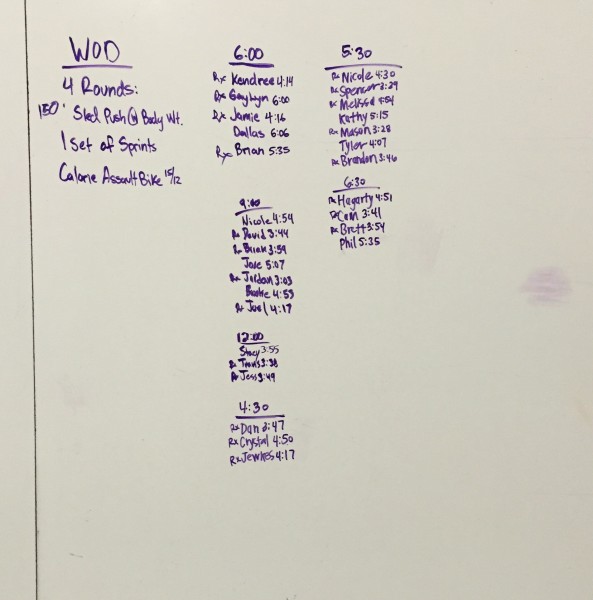 WOD
4 Rounds:
150' Sled Push @ Body Wt.
1 Set of Sprints
Calorie Assault Bike 15/12
6:00
Rx Kendree 4:14
Rx Gaylyn 6:00
Rx Jamie 4:16
Dallas 6:06
Rx Brian 5:35
9:00
Nicole 4:54
Rx David 3:44
Rx Brian 3:59
Jose 5:07
Rx Jordan 3:03
4:53
Rx Joel 4:17
12:00
Stacy 3:55
Rx Travis 3:38
Rx Jess 3:49
4:30
Rx Dan 2:47
Rx Crystal 4:50
Rx Jewkes 4:17
5:30
Rx Nicole 4:30
Rx Spencer 3:29
Rx Melissa 4:54
Kathy 5:15
Rx Mason 3:28
Tyler 4:07
Rx Brandon 3:46
6:30
Rx Hagarty 4:51
Rx Cam 3:41
Rx Brett 3:54
Phil 5:35